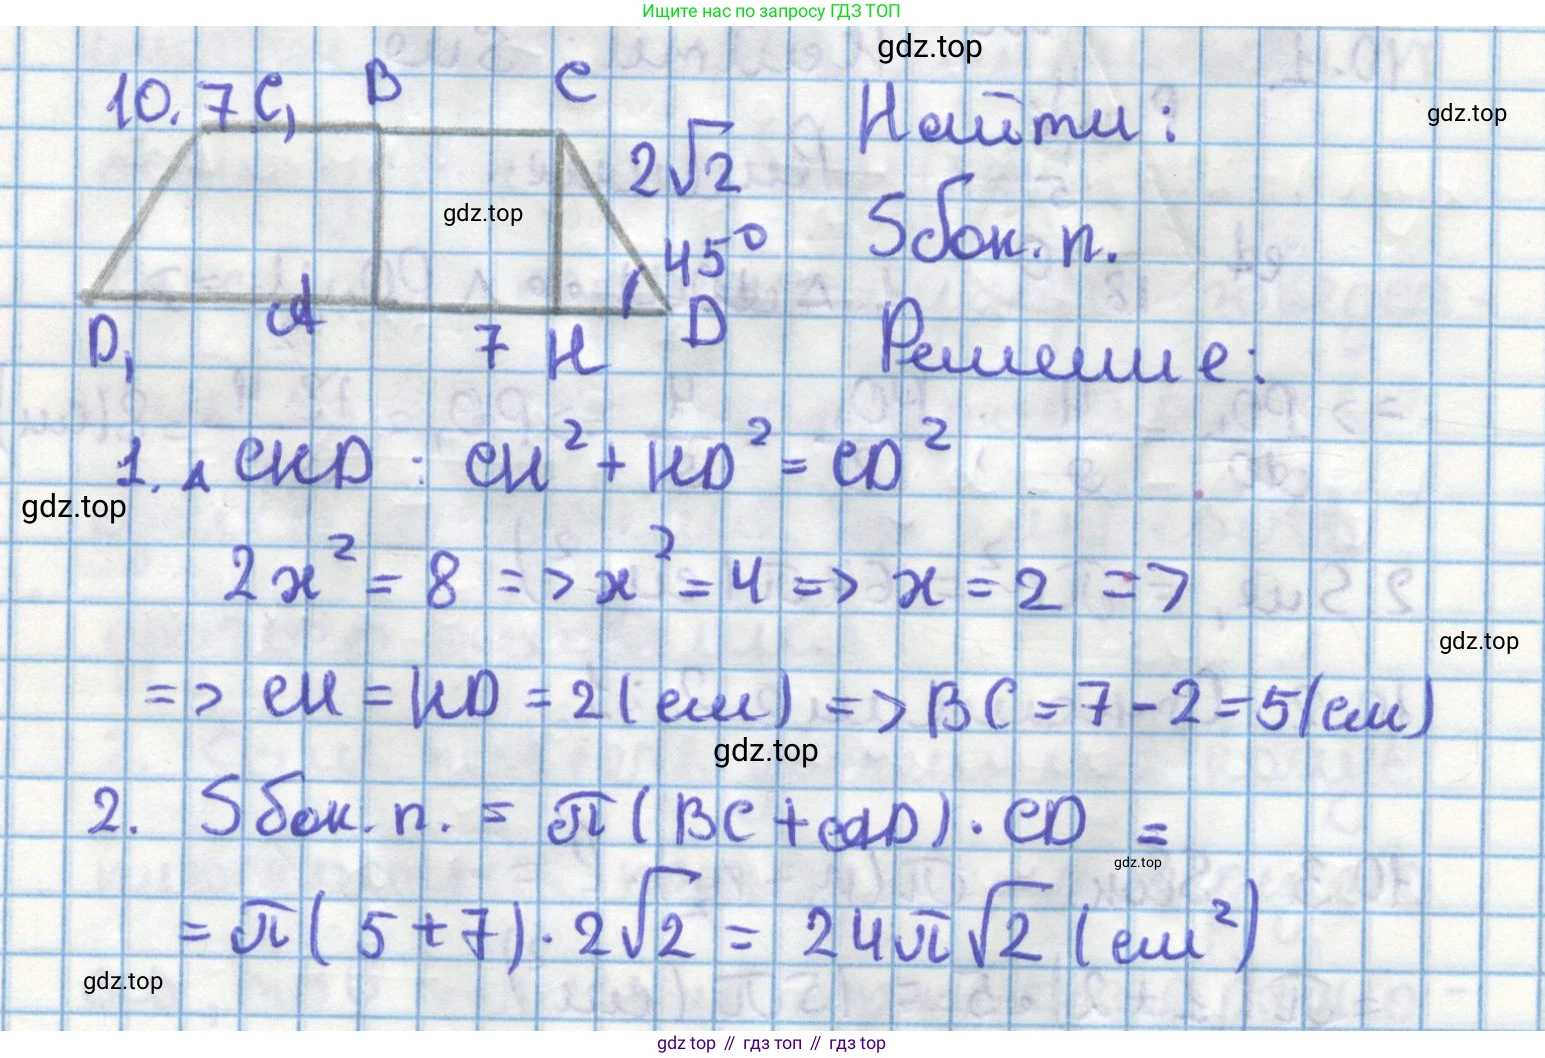 Ищите нас по запросу ГДЗ ТОП
gdz.top
10.7 C₁ B C
Найти:
gdz.top
2√2
gdz.top
45°
Sбок. п.
D₁ A 7 H D
Решение:
1. △ CHD : CH² + HD² = CD²
gdz.top
2x² = 8 => x² = 4 => x = 2 =>
gdz.top
=> CH = HD = 2 (см) => BC = 7 - 2 = 5 (см)
gdz.top
2. Sбок. п. = π (BC + AD) · CD =
gdz.top
= π ( 5 + 7) · 2√2 = 24π√2 (см²)
gdz.top
gdz top // гдз топ // гдз top